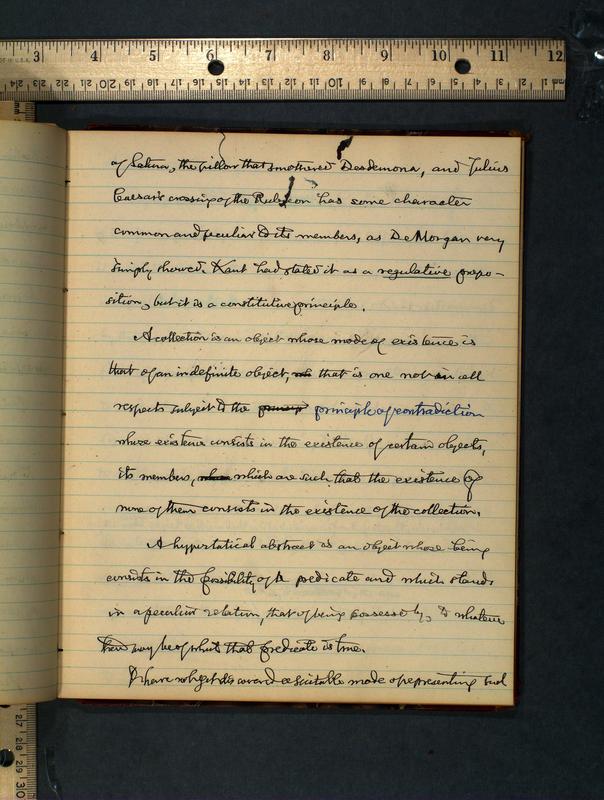 of Saturn, the pillow that smothered Desdemona, and Julius
Caesar's crossing of the Rubicon has some character
common and peculiar to its members, as De Morgan very
simply showed. Kant had stated it as a regulative propo-
sition, but it is a constitutive principle.
A collection is an object whose mode of existence is
that of an indefinite object, that is one not in all
respects subject to the principle of contradiction
whose existence consists in the existence of certain objects,
its members, which are such that the existence of
none of them consists in the existence of the collection.
A hypostatical abstract is an object whose being
consists in the possibility of a predicate and which stands
in a peculiar relation, that of being possessed by, to whatever
there may be of which that predicate is true.
I have not yet discovered a suitable mode of representing such
3 4 5 6 7 8 9 10 11 12